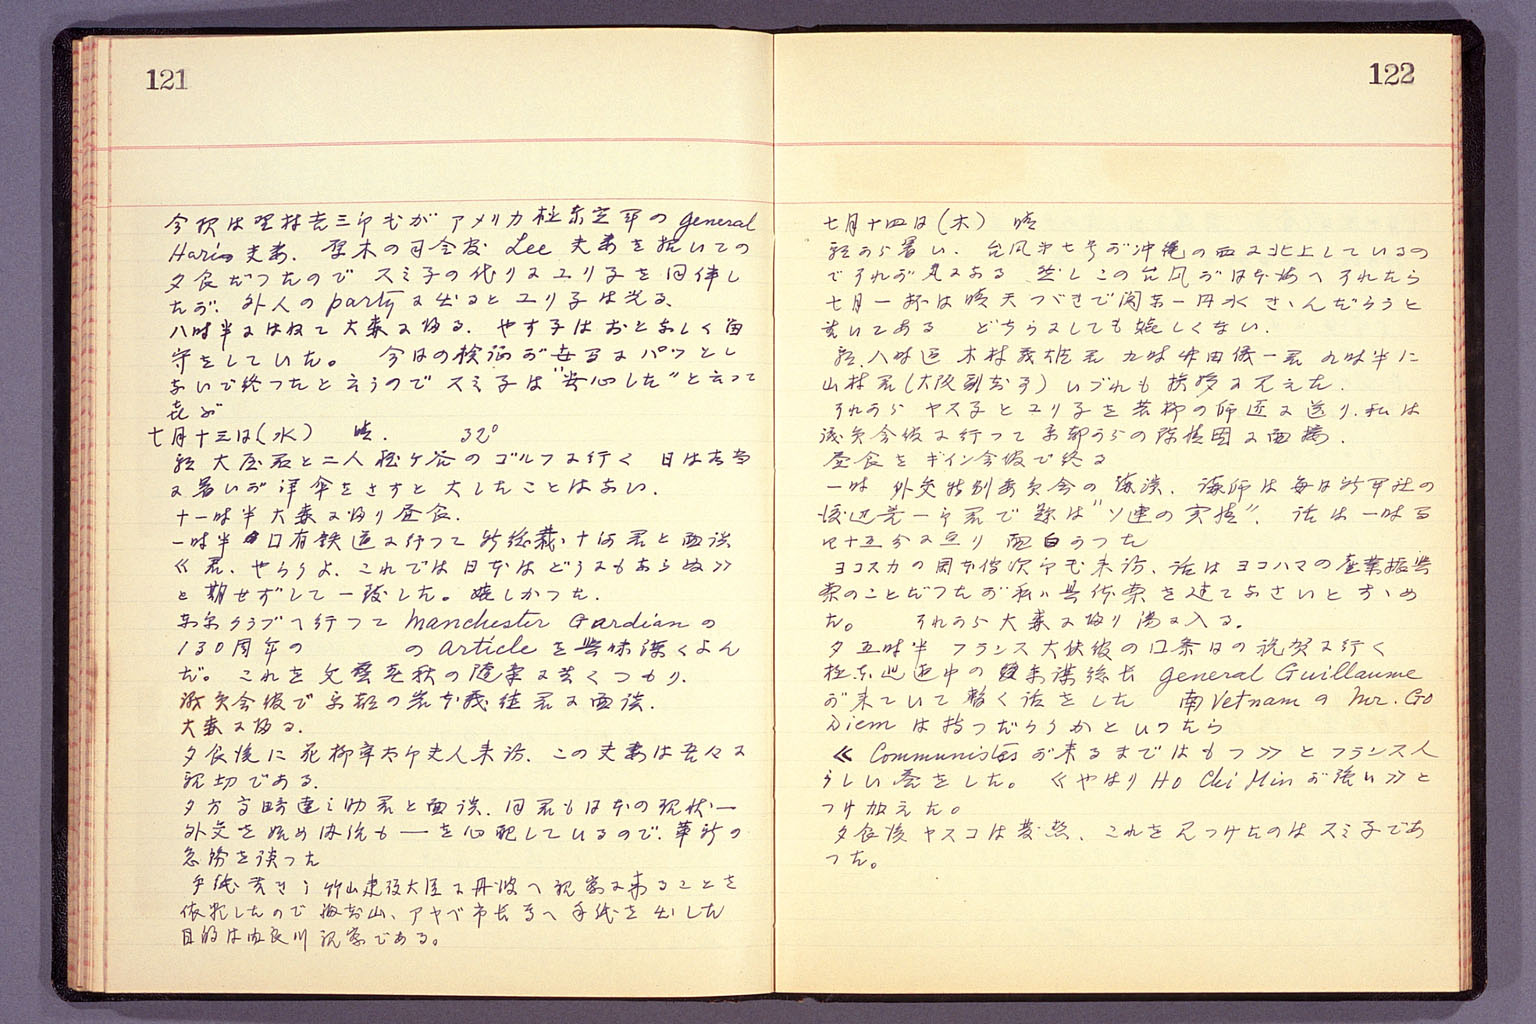 121
今夜は野村吉三郎氏がアメリカ極東空軍の general
夫妻、の司令官 Lee 夫妻を招いての
夕食だつたので スミ子の代りにユリ子を同伴し
たが、外人の party に出るとユリ子は光る、
八時半にはねて大森に帰る、やす子はおとなしく留
守をしていた。 今日の検温が七度にパツとし
ないで終つたと云うのでスミ子は"安心した"と云つて
喜ぶ
七月十三日(水) 晴、 32°
朝 大屋君と二人程ケ谷のゴルフに行く 日は相当
に暑いが洋傘をさすと大したことはない、
十一時半 大森に帰り昼食、
一時半 国有鉄道に行つて新総裁十河君と面談
≪君、やろうよ、これでは日本はどうにもならぬ≫
と期せずして一致した。嬉しかつた、
東京クラブへ行つて Manchester Gardian の
130周年の の article を興味深くよん
だ。これを文藝春秋の随筆に書くつもり、
議員会館で京都の岩本義徳君に面談、
大森に帰る、
夕食後に花柳章太郎夫人来訪、この夫妻は吾々に
親切である、
夕方高碕達之助君と面談、同君も日本の現状―
外交を始め内治も―を心配しているので、革新の
急務を談つた
手紙書き、竹山建設大臣に丹波へ視察に来ることを
依頼したので福知山、アヤベ市長等へ手紙を出した
目的は由良川視察である。
122
七月十四日(木) 晴
朝から暑い、台風第七号が沖縄の西に北上しているの
でそれが見える 然しこの台風が日本海へそれたら
七月一杯は晴天つづきで関東一円水ききんだろうと
書いてある どちらにしても嬉しくない、
朝、八時 木村義雄君 九時 田儀一君 九時半に
山村君(大阪副知事) いづれも挨拶に見えた、
それから ヤス子とユリ子を若柳の師匠に送り、私は
議員会館に行つて京都からの陳情団に面接、
昼食をギイン会館で終る
一時 外交特別委員会の講演、講師は毎日新聞社の
渡辺善一郎君で題は"ソ連の実情"、話は一時間
四十五分に亘り 面白かつた
ヨコスカの岡本伝次郎氏来訪、話はヨコハマの産業振興
策のことだつたが私は具体案を建てなさいとすゝめ
た。 それから大森に帰り湯に入る、
夕五時半 フランス大使館の国祭日の祝賀に行く
極東巡遊中の参謀総長 general Guillaume
が来ていて暫く話をした 南Vetnam の Mr. Go
Diem は持つだらうかといつたら
≪ Communistes が来るまではもつ ≫ とフランス人
らしい答をした。≪やはり Ho Chi Min が強い≫ と
つけ加えた。
夕食後ヤスコは発熱、これを見つけたのはスミ子であ
つた。